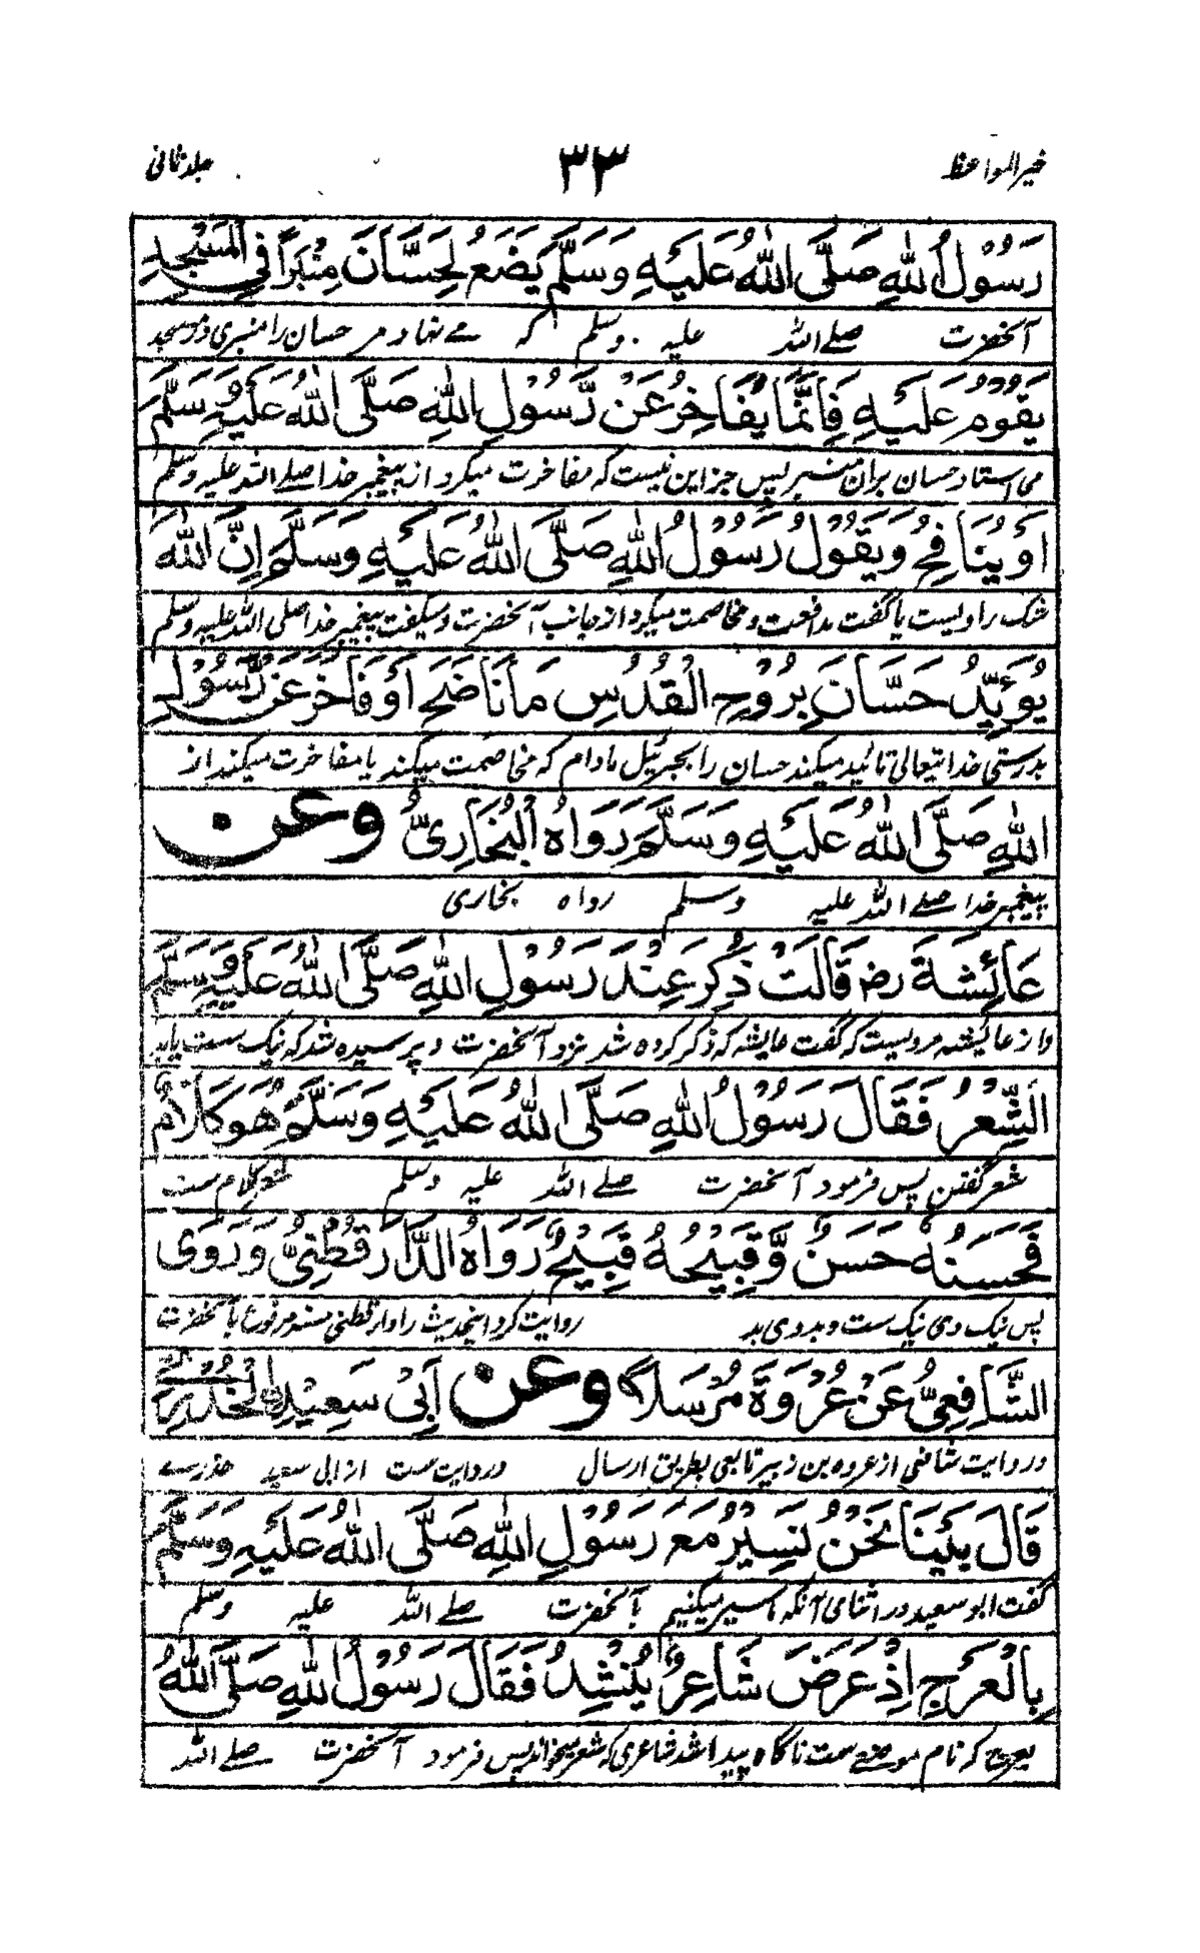 خیر المواعظ ۳۳ جلد ثانی
رَسُوْلُ اللهِ صَلَّى اللهُ عَلَيْهِ وَسَلَّمَ يَضَعُ لِحَسَّانَ مِنْبَرًا فِي الْمَسْجِدِ
آنحضرت صلے اللہ علیہ وسلم کہ مے نهاد مر حسان را منبری در مسجد
يَقُوْمُ عَلَيْهِ فَاِنَّمَا يُفَاخِرُ عَنْ رَّسُوْلِ اللهِ صَلَّى اللهُ عَلَيْهِ وَسَلَّمَ
می استاد حسان بران منبر پس جز این نیست که مفاخرت میکرد از پیغمبر خدا صلے اللہ علیہ وسلم
اَوْ يُنَافِحُ وَيَقُوْلُ رَسُوْلُ اللهِ صَلَّى اللهُ عَلَيْهِ وَسَلَّمَ اِنَّ اللهَ
شک راویست یا گفت مدافعت و مخاصمت میکرد از جانب آنحضرت و میگفت پیغمبر خدا صلی اللہ علیہ وسلم
يُؤَيِّدُ حَسَّانَ بِرُوْحِ الْقُدُسِ مَا نَافَحَ اَوْ فَاخَرَ عَنْ رَّسُوْلِ
بدرستی خدایتعالی تائید میکند حسان را بجبرئیل مادام که مخاصمت میکند یا مفاخرت میکند از
اللهِ صَلَّى اللهُ عَلَيْهِ وَسَلَّمَ رَوَاهُ الْبُخَارِيُّ وعن
پیغمبر خدا صلے اللہ علیہ وسلم رواہ بخاری
عَائِشَةَ رض قَالَتْ ذُكِرَ عِنْدَ رَسُوْلِ اللهِ صَلَّى اللهُ عَلَيْهِ وَسَلَّمَ
و از عائیشہ مرویست که گفت عایشه که ذکر کرده شد نزد آنحضرت و پرسیده شد که نیک ست یا بد
الشِّعْرُ فَقَالَ رَسُوْلُ اللهِ صَلَّى اللهُ عَلَيْهِ وَسَلَّمَ هُوَ كَلَامٌ
شعر گفتن پس فرمود آنحضرت صلے اللہ علیہ وسلم شعر کلام ست
فَحَسَنُهٗ حَسَنٌ وَّقَبِيْحُهٗ قَبِيْحٌ رَوَاهُ الدَّارَ قُطْنِيُّ وَرَوَى
پس نیک وی نیک ست و بد وی بد روایت کرد اینحدیث را دار قطنی مسند مرفوع بآنحضرت
الشَّافِعِيُّ عَنْ عُرْوَةَ مُرْسَلًا وعن اَبِيْ سَعِيْدٍ الْخُدْرِيِّ
و روایت شافعی از عروه بن زبیر تابعی بطریق ارسال و روایت ست از ابی سعید خدرے
قَالَ بَيْنَا نَحْنُ نَسِيْرُ مَعَ رَسُوْلِ اللهِ صَلَّى اللهُ عَلَيْهِ وَسَلَّمَ
گفت ابو سعید در اثنای آنکه ما سیر میکنیم بآنحضرت صلے اللہ علیہ وسلم
بِالْعَرَجِ اِذْ عَرَضَ شَاعِرٌ يُنْشِدُ فَقَالَ رَسُوْلُ اللهِ صَلَّى اللهُ
بعرج که نام موضعے ست ناگاه پیدا شد شاعری که شعر میخواند پس فرمود آنحضرت صلے اللہ